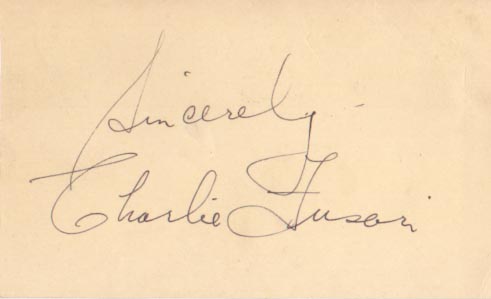 Sincerely
Charlie Fusari